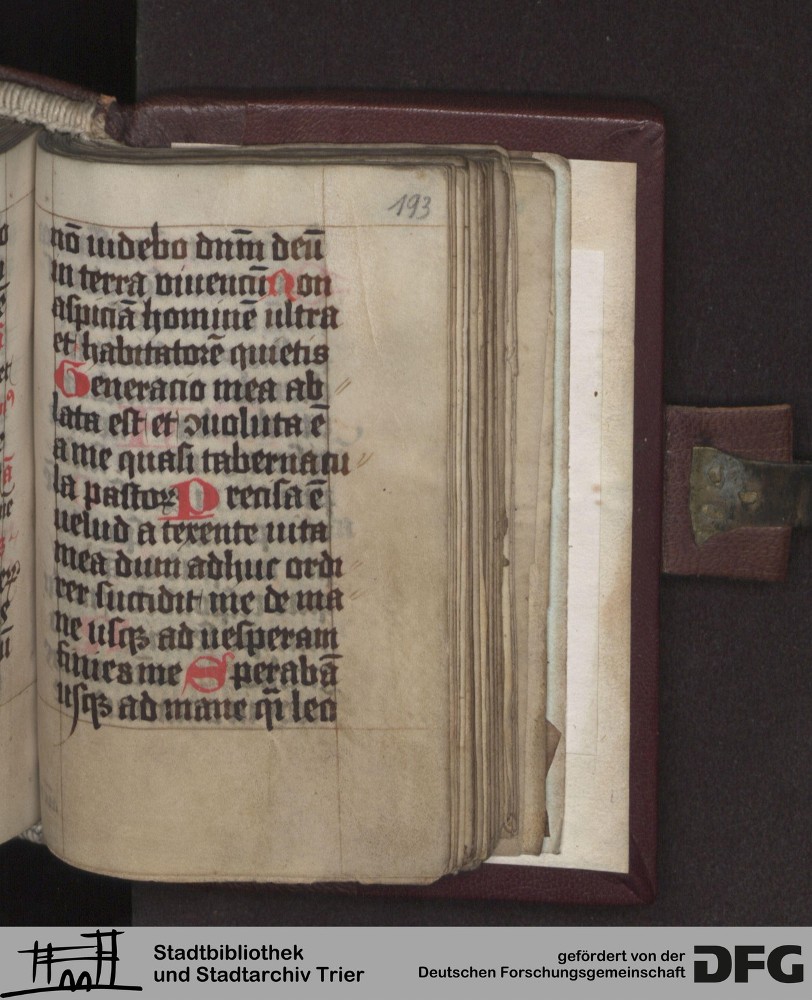 193
nō uidebo dnm̄ deū
in terra viuenciū Non
aspiciā hominē ultra
et habitatorē quietis
Generacio mea ab
lata est et ꝯuoluta ē
a me quasi tabernacu
la pastoꝝ Precisa ē
uelud a texente uita
mea dum adhuc ordi
rer succidit me de ma
ne usqꝫ ad uesperam
finies me Sperabā
usqꝫ ad mane qͣi leo
Stadtbibliothek
und Stadtarchiv Trier
gefördert von der
Deutschen Forschungsgemeinschaft
DFG